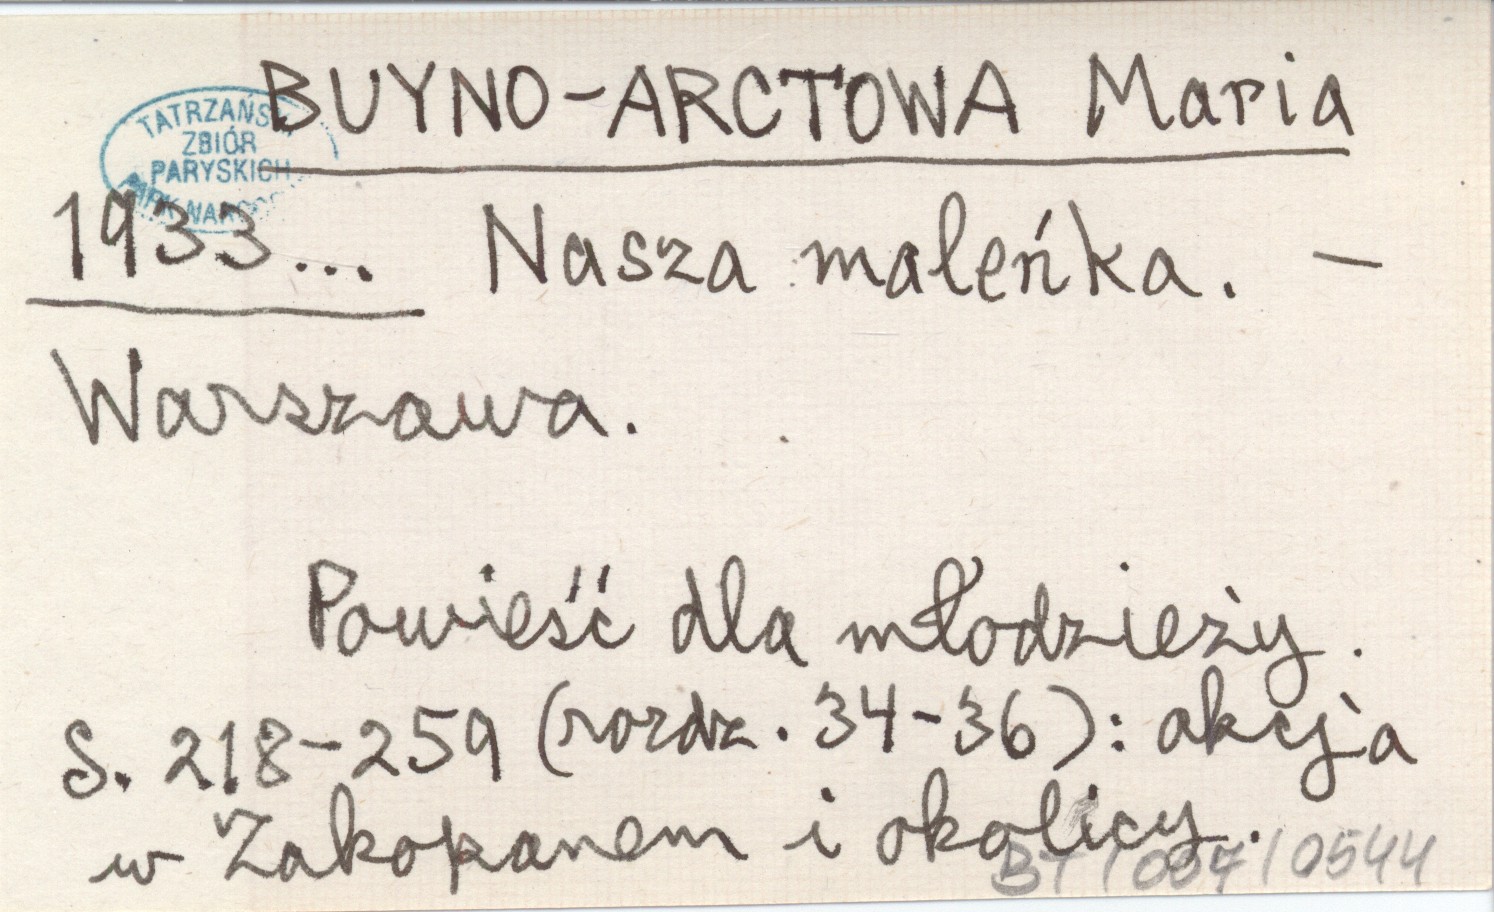 BUYNO-ARCTOWA Maria
TATRZAŃS
ZBIÓR
PARYSKICH
1933... Nasza maleńka. —
Warszawa.
Powieść dla młodzieży.
S. 218-259 (rozdz. 34-36): akcja
w Zakopanem i okolicy.
BT/007/0544